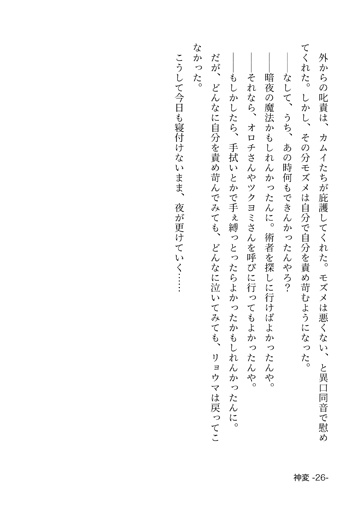 外からの叱責は、カムイたちが庇護してくれた。モズメは悪くない、と異口同音で慰め
てくれた。しかし、その分モズメは自分で自分を責め苛むようになった。
――なして、うち、あの時何もできんかったんやろ？
――暗夜の魔法かもしれんかったんに。術者を探しに行けばよかったんや。
――それなら、オロチさんやツクヨミさんを呼びに行ってもよかったんや。
――もしかしたら、手拭いとかで手ぇ縛っとったらよかったかもしれんかったんに。
だが、どんなに自分を責め苛んでみても、どんなに泣いてみても、リョウマは戻ってこ
なかった。
こうして今日も寝付けないまま、夜が更けていく……
神変 -26-